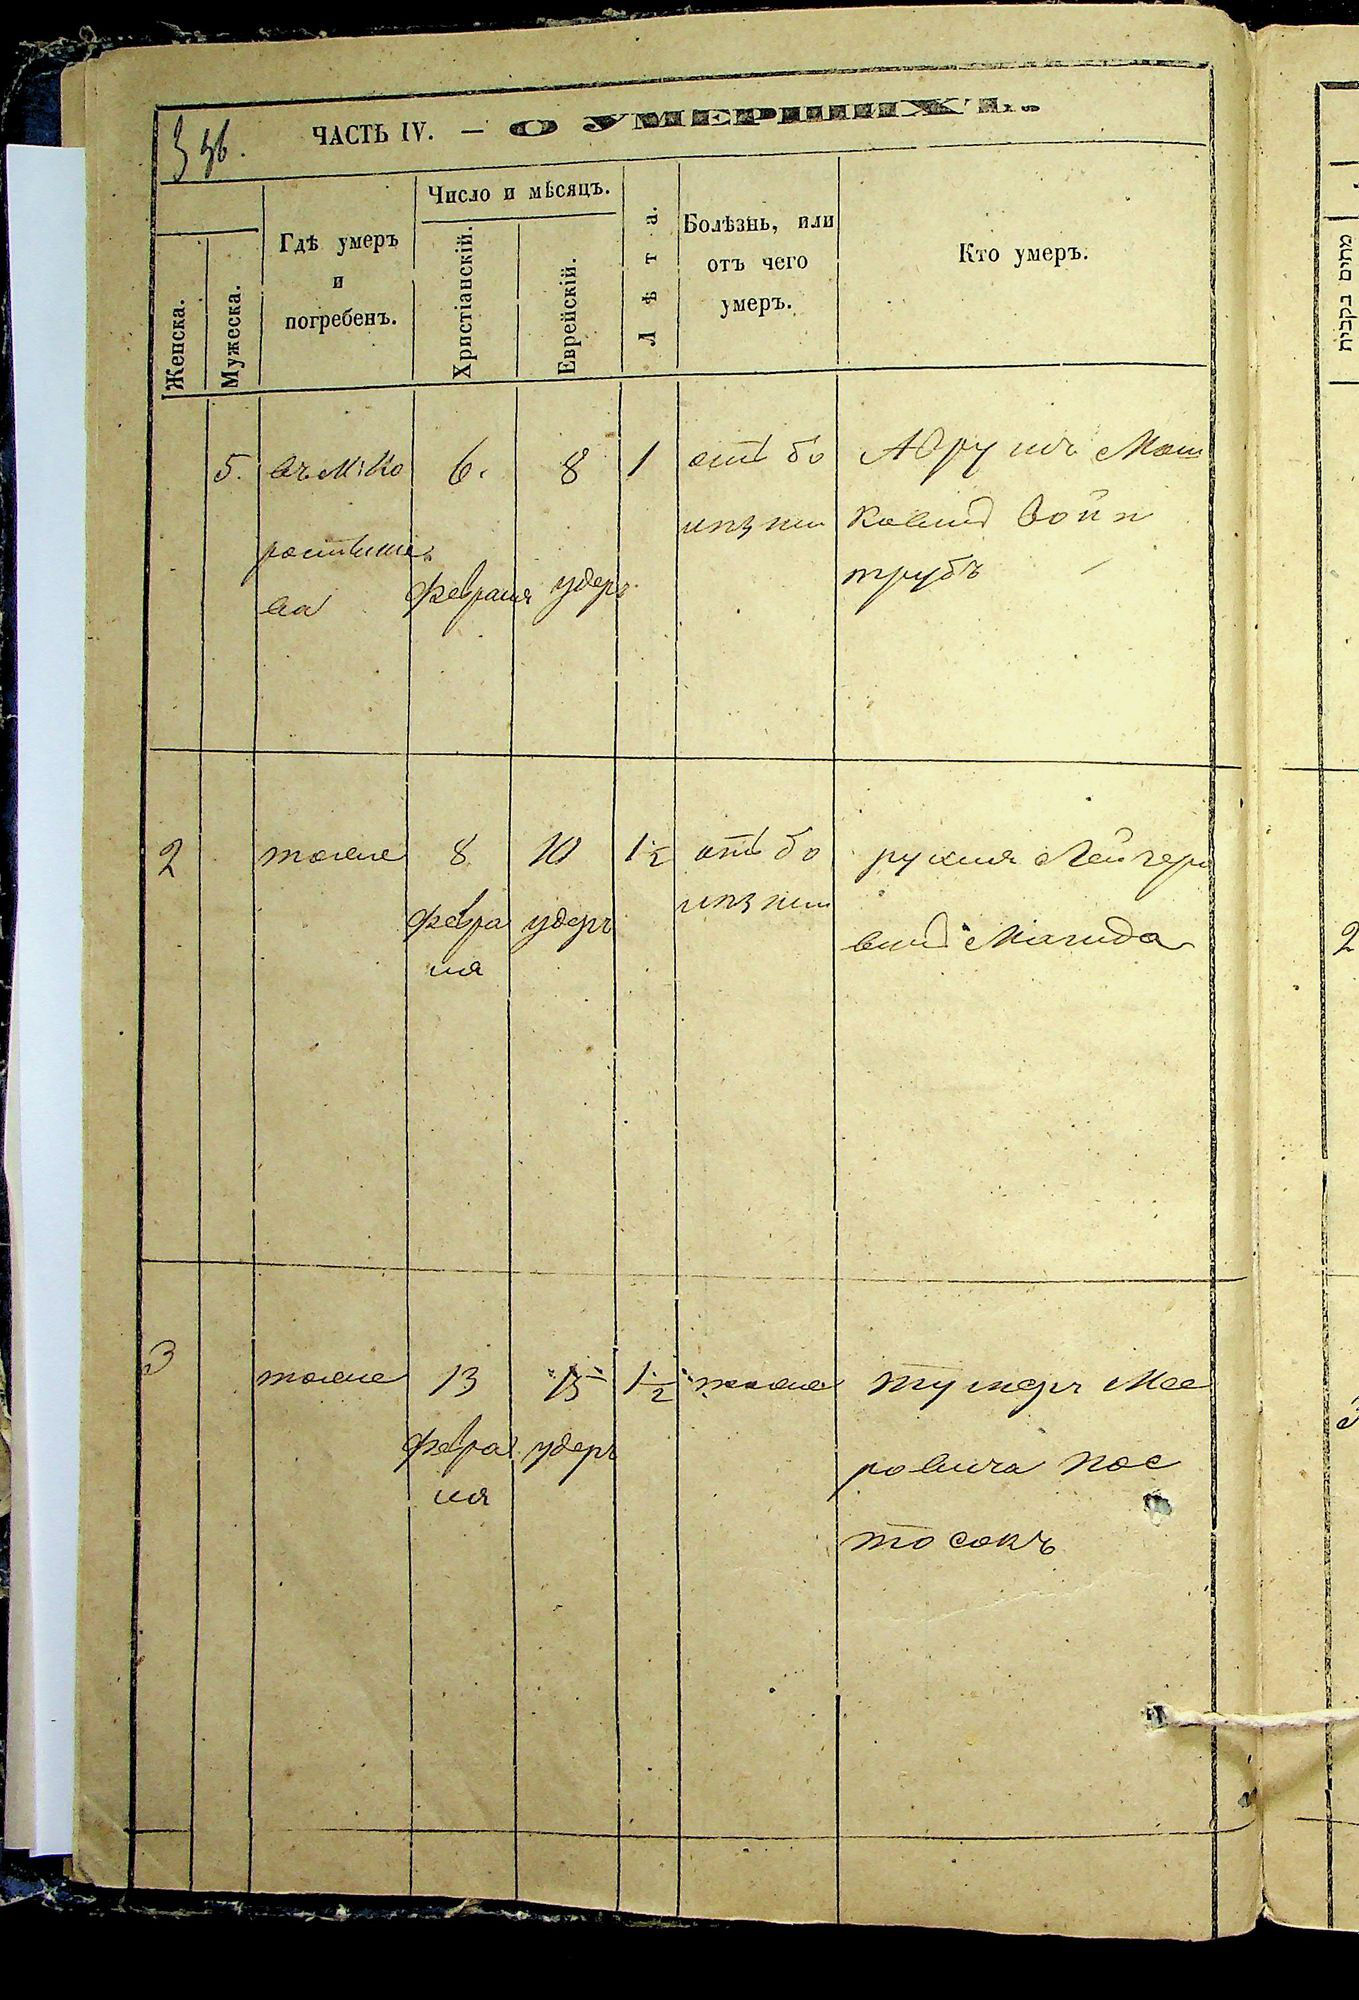 ЧАСТЬ IV. — О УМЕРШИХЪ.
Женска.
Мужеска.
Гдѣ умеръ
и
погребенъ.
Число и мѣсяцъ.
Христіанскій.
Еврейскій.
Лѣта.
Болѣзнь, или
отъ чего
умеръ.
Кто умеръ.
5.
въ М: Ко
ростыше
ва
6.
февраля
8
удеръ
1
отъ бо
лѣзни
Аврумъ Мош
ковичъ Войн
трубъ
2
тоже
8
февра
ля
10
удеръ
1 1/2
отъ бо
лѣзни
рухля Лейзеро
вичъ Магида
3
тоже
13
февра
ля
15
удеръ
1 1/2
тоже
Мее
ровича Пос
тосокъ
מתים נקבית
2
3